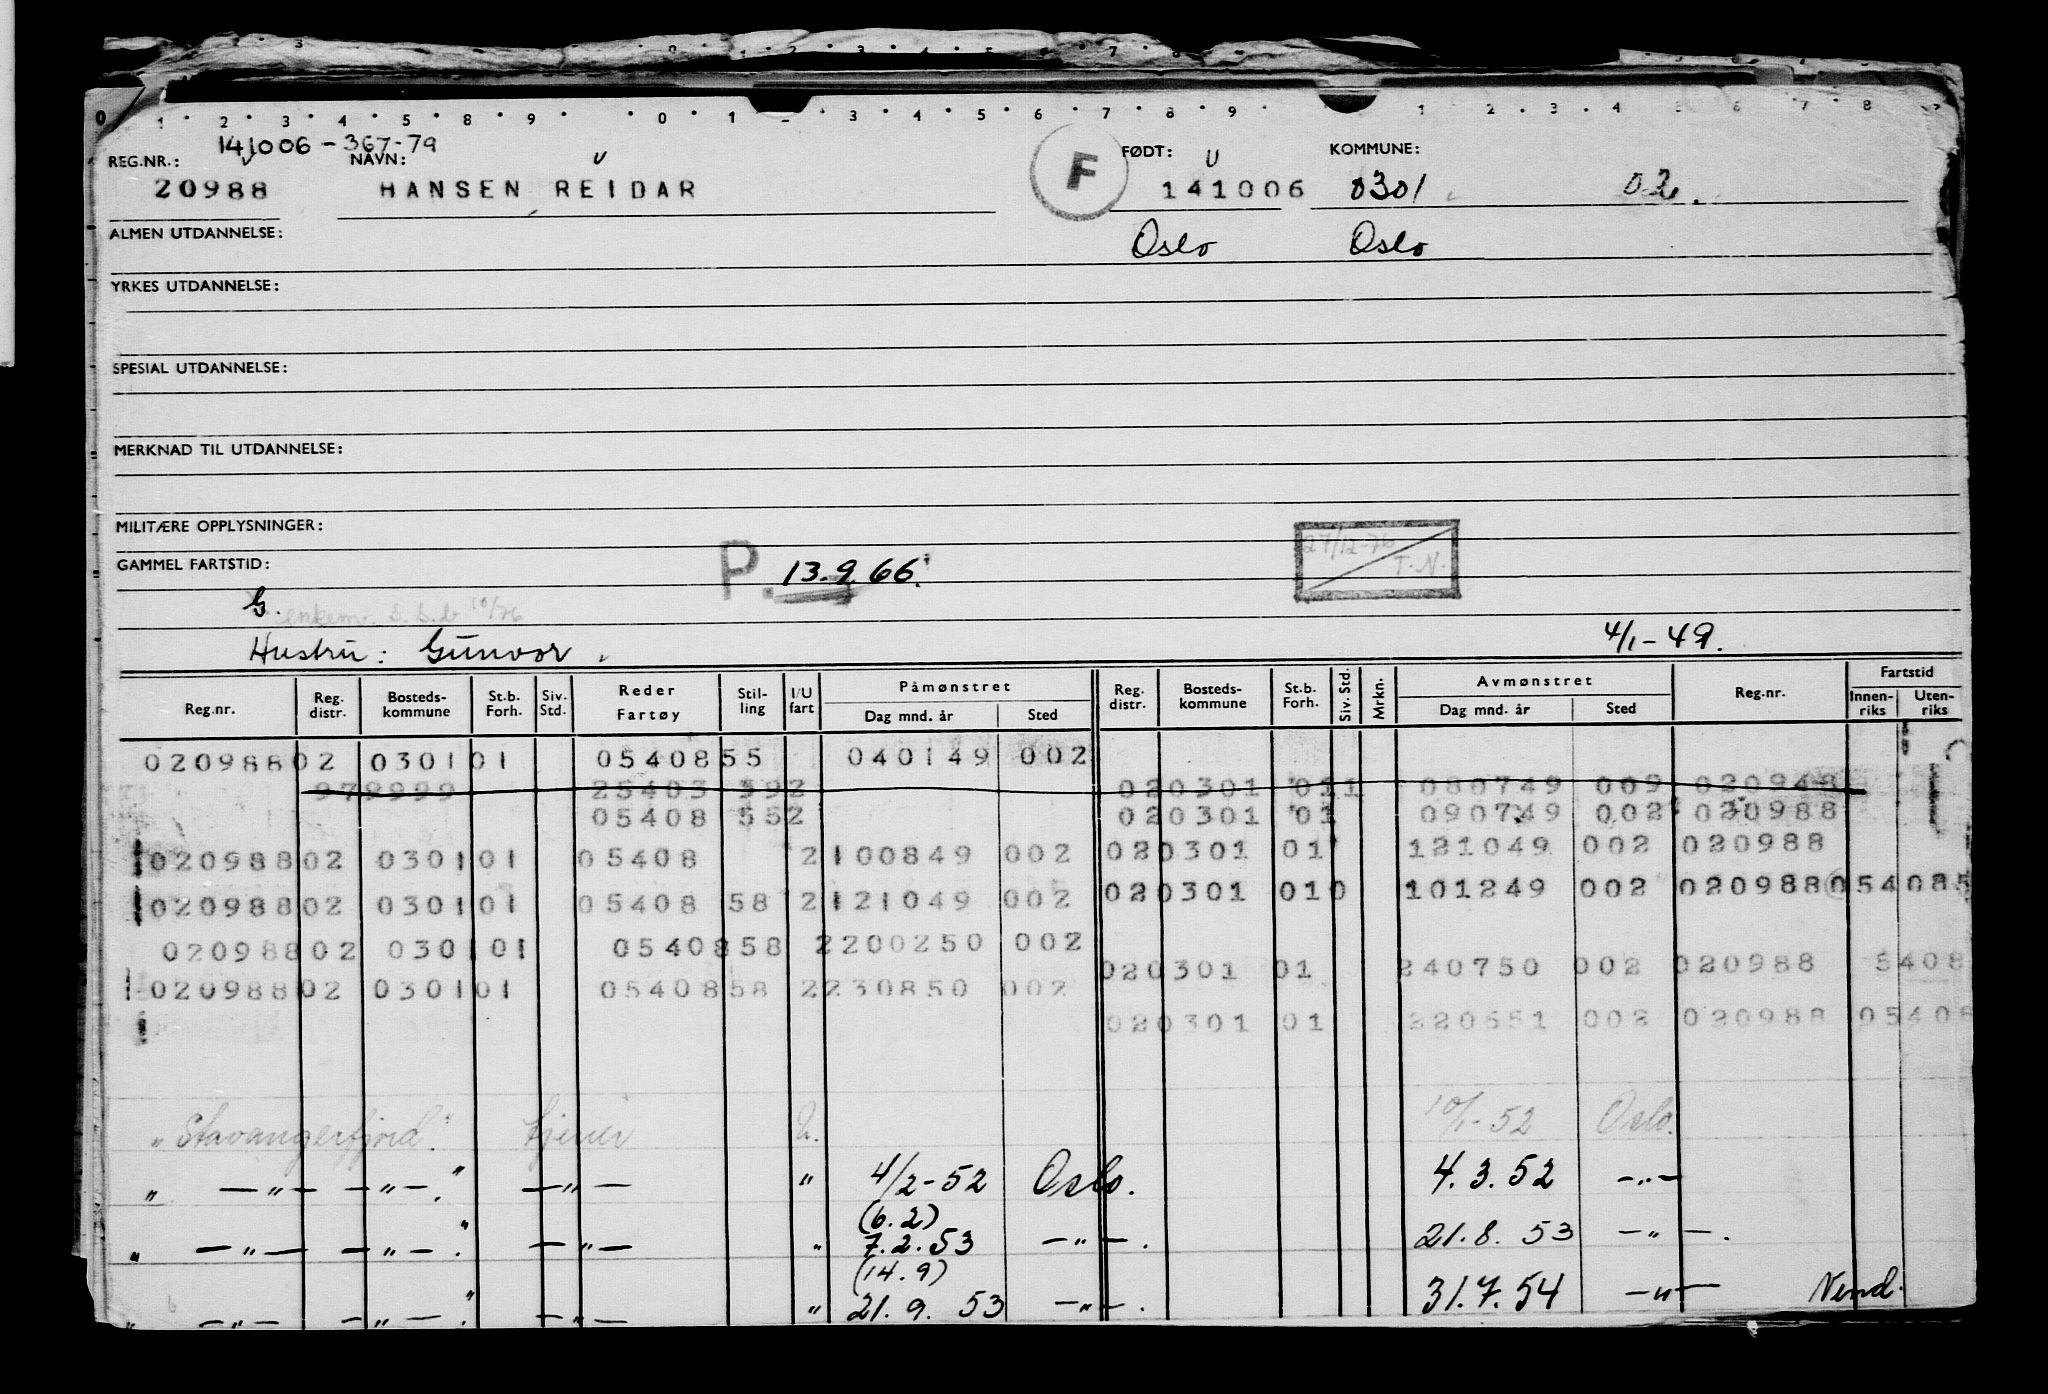 3 0 1 2 3 4 5 6 7 8
0 1 2 3 4 5 6 7 8 9 0 1 – 3 4 5 6 7 8 9 1 2 3 4 5 6 7 8
141006-367-79
REG.NR.: NAVN: F FØDT: KOMMUNE:
20988 HANSEN, REIDAR 141006 0301 02.
ALMEN UTDANNELSE: Oslo Oslo
YRKES UTDANNELSE:
SPESIAL UTDANNELSE:
MERKNAD TIL UTDANNELSE:
MILITÆRE OPPLYSNINGER:
27/12-76 T.N.
GAMMEL FARTSTID: P. 13.9.66.
G. enkem. S.S.b 10/76
Hustru: Gunvor. 4/1-49.
Reg.nr. Reg. distr. Bosteds- kommune St.b. Forh. Siv. Std. Reder Fartøy Stil- ling I/U fart Påmønstret Dag mnd. år Sted Reg. distr. Bosteds- kommune St.b. Forh. Siv. Std. Mrkn. Avmønstret Dag mnd. år Sted Reg.nr. Fartstid Innen- riks Uten- riks
020988 02 0301 01 05408 55 040149 002
979999 25403 392 020301 011 080749 009 020948
05408 552 020301 01 090749 002 020988
020988 02 0301 01 05408 2 100849 002 020301 01 121049 002 020988
020988 02 0301 01 05408 58 2 121049 002 020301 010 101249 002 020988 054085
020988 02 0301 01 05408 58 2 200250 002
020301 01 240750 002 020988 5408
020988 02 0301 01 05408 58 2 230850 002
020301 01 220651 002 020988 05408
"Stavangerfjord." tjener U. 10/1-52 Oslo.
" —"— —"—." —"— " 4/2-52 Oslo. 4.3.52 —"—
(6.2)
" —"— —"—." —"— " 7.2.53 —"—. 21.8.53 —"—.
(14.9)
" —"— —"—." —"— " 21.9.53 —"—. 31.7.54 —"— Vend.